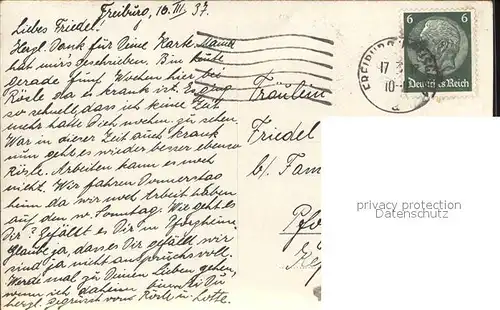 Freiburg, 16. III. 37.
Liebes Friedel!
Herzl. Dank für Deine Karte. Mama
hat mirs geschrieben. Bin heute
gerade fünf Wochen hier bei
Rösle da sie krank ist. Es ging
so schnell dass ich keine Zeit
mehr hatte Dich noch zu sehen.
War in dieser Zeit auch krank
nun geht es wieder besser ebenso
Rösle. Arbeiten kann es noch
nicht. Wir fahren Donnerstag
heim da wir noch Arbeit haben
auf den w. Sonntag. Wie geht es
Dir? Gefällt es Dir in Pforzheim
Glaube ja, dass es Dir gefällt wir
sind ja nicht anspruchsvoll.
Werde mal zu Deinen Lieben gehen,
wenn ich daheim bin. Sei Du
herzl. gegrüsst von Rösle u. Lotte.
Fräulein
Friedel
b/ Fam
Pfo
FREIBURG
17. 3
10-
a
6 6
Deutsches Reich
privacy protection
Datenschutz